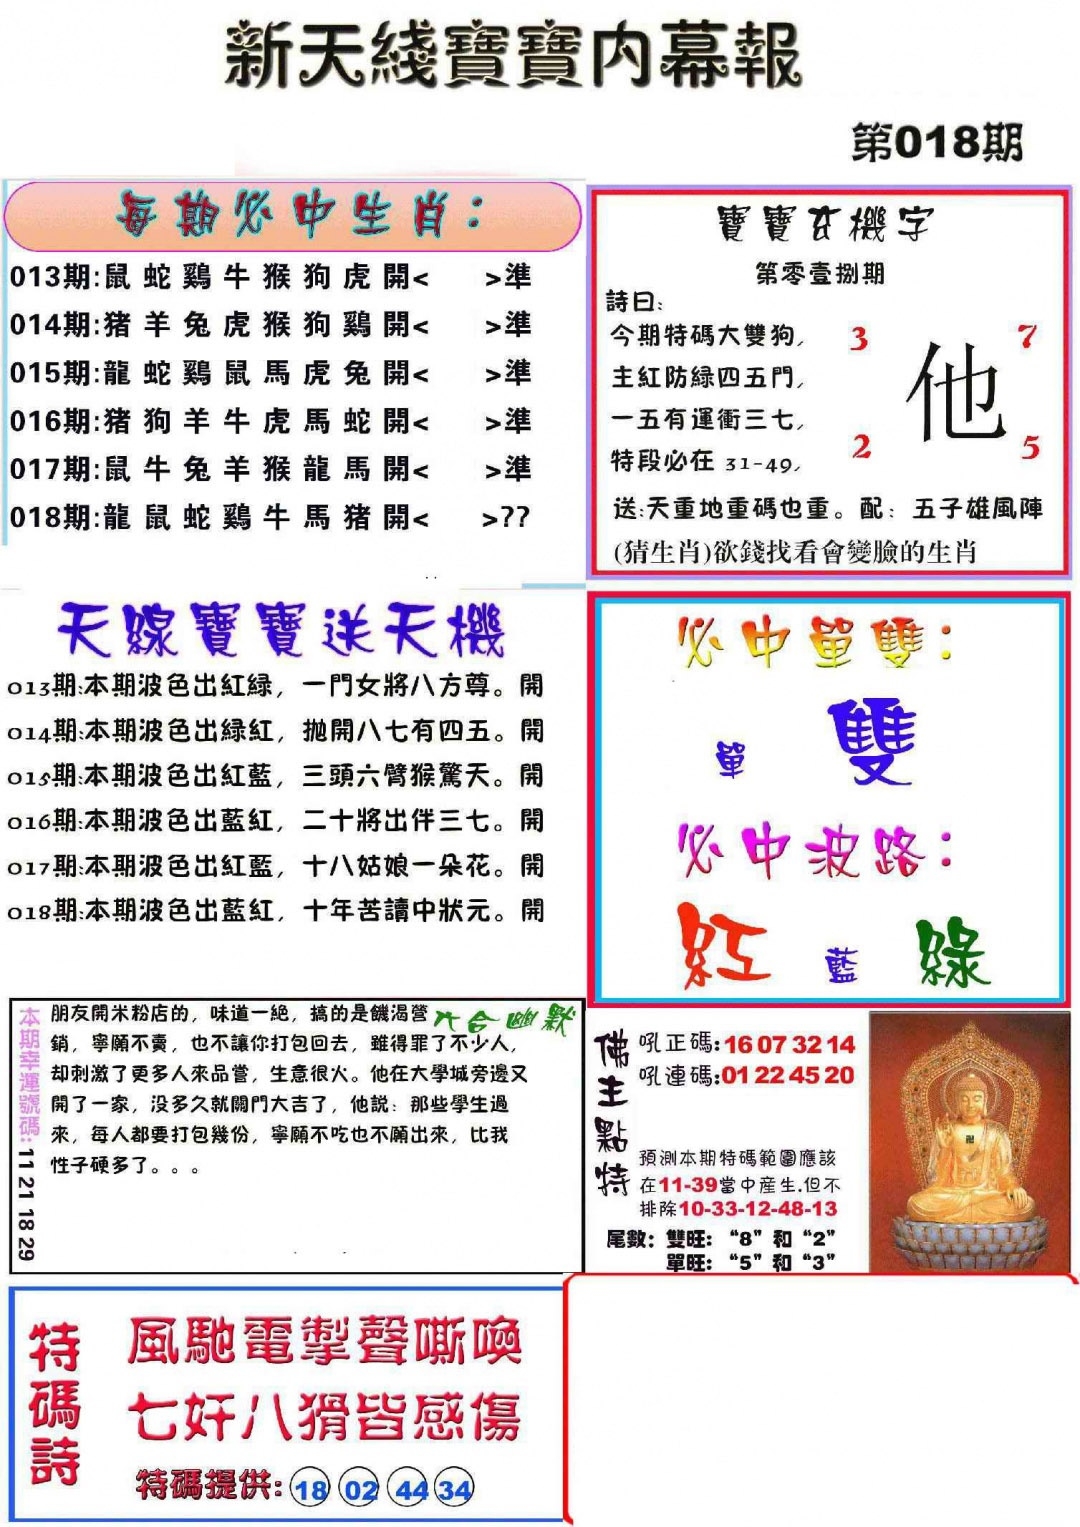 新天綫寶寶内幕報
第018期
每期必中生肖：
013期:鼠 蛇 鷄 牛 猴 狗 虎 開< >準
014期:猪 羊 兔 虎 猴 狗 鷄 開< >準
015期:龍 蛇 鷄 鼠 馬 虎 兔 開< >準
016期:猪 狗 羊 牛 虎 馬 蛇 開< >準
017期:鼠 牛 兔 羊 猴 龍 馬 開< >準
018期:龍 鼠 蛇 鷄 牛 馬 猪 開< >??
寶寶玄機字
第零壹捌期
詩曰:
今期特碼大雙狗,
主紅防緑四五門,
一五有運衝三七,
特段必在 31-49,
3 7
他
2 5
送:天重地重碼也重。配：五子雄風陣
(猜生肖)欲錢找看會變臉的生肖
天線寶寶送天機
013期:本期波色出紅緑，一門女將八方尊。開
014期:本期波色出緑紅，抛開八七有四五。開
015期:本期波色出紅藍，三頭六臂猴驚天。開
016期:本期波色出藍紅，二十將出伴三七。開
017期:本期波色出紅藍，十八姑娘一朵花。開
018期:本期波色出藍紅，十年苦讀中狀元。開
必中單雙：
單 雙
必中波路：
紅 藍 綠
本期幸運號碼: 11 21 18 29
六合幽默
朋友開米粉店的，味道一絶，搞的是饑渴營
銷，寧願不賣，也不讓你打包回去，雖得罪了不少人，
却刺激了更多人來品嘗，生意很火。他在大學城旁邊又
開了一家，没多久就關門大吉了，他説：那些學生過
來，每人都要打包幾份，寧願不吃也不願出來，比我
性子硬多了。。。
佛主點特
吼正碼:16 07 32 14
吼連碼:01 22 45 20
預測本期特碼範圍應該
在11-39當中産生.但不
排除10-33-12-48-13
尾數：雙旺：“8”和“2”
單旺：“5”和“3”
特碼詩
風馳電掣聲嘶喚
七奸八猾皆感傷
特碼提供: 18 02 44 34